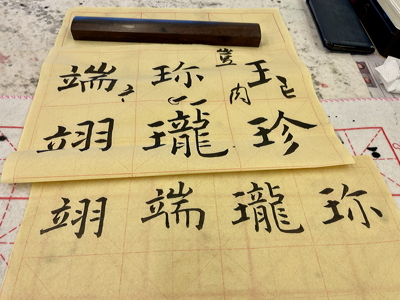 端 珎
翊 瓏 珍
翊 端 瓏 珎